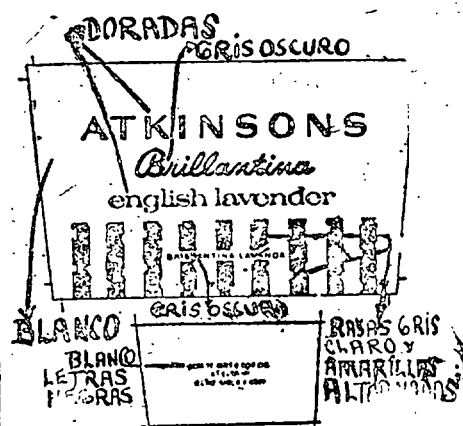 DORADAS
GRIS OSCURO
ATKINSONS
Brillantina
english lavender
BRILLANTINA LAVENDA
GRIS OSCURO
BLANCO
BLANCO
LETRAS
NEGRAS
RAYAS GRIS
CLARO Y
AMARILLAS
ALTERNADAS